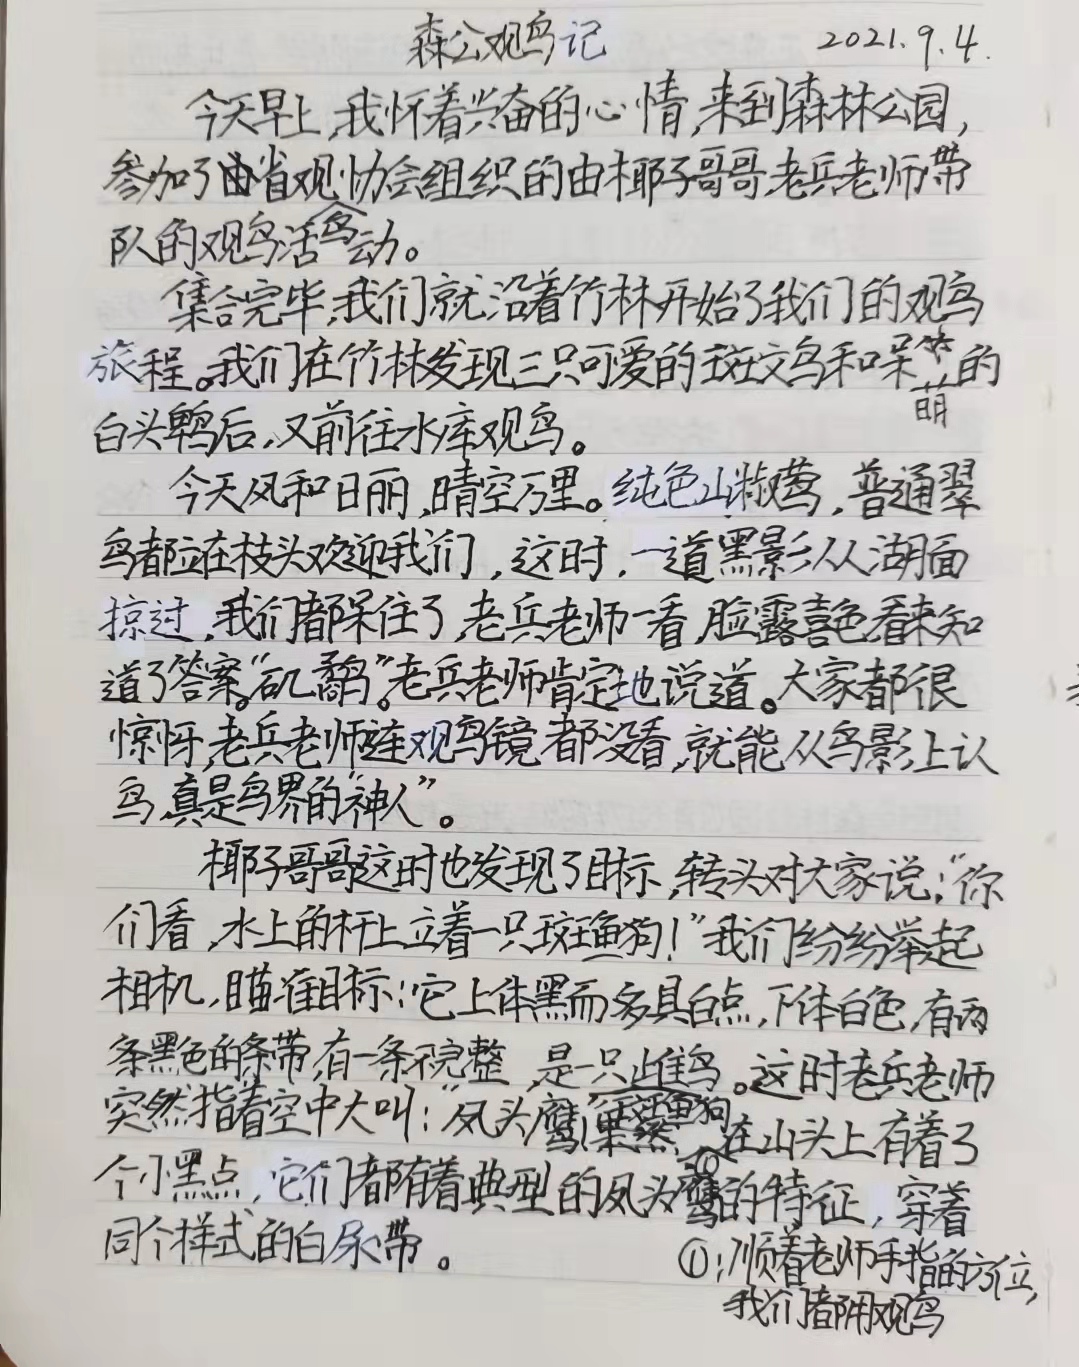 森公观鸟记 2021.9.4.
今天早上,我怀着兴奋的心情,来到森林公园,
参加了由省观鸟协会组织的由椰子哥哥,老兵老师带
队的观鸟活动。
集合完毕,我们就沿着竹林开始了我们的观鸟
旅程。我们在竹林发现三只可爱的斑文鸟和呆萌的
白头鹎后,又前往水库观鸟。
今天风和日丽,晴空万里。纯色山椒莺,普通翠
鸟都立在枝头欢迎我们,这时,一道黑影从湖面
掠过,我们都呆住了,老兵老师一看,脸露喜色,看来知
道了答案。“矶鹬”。老兵老师肯定地说道。大家都很
惊呀,老兵老师连观鸟镜都没看,就能从鸟影上认
鸟,真是鸟界的“神人”。
椰子哥哥这时也发现了目标,转头对大家说:“你
们看,水上的杆上立着一只斑鱼狗!”我们纷纷举起
相机,瞄准目标:它上体黑而多具白点,下体白色,有两
条黑色的条带,有一条不完整,是一只雌鸟斑鱼狗。这时老兵老师
突然指着空中大叫:“凤头鹰!”果然,①在山头上有着了
个小黑点,它们都有着典型的凤头鹰的特征,穿着
同个样式的白尿带。
①:顺着老师手指的方位,
我们都用观鸟